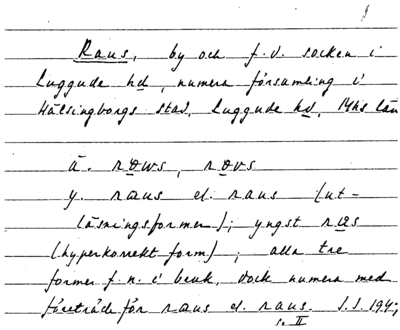 Raus, by och f.d. socken i
Luggude hd, numera församling i
Hälsingborgs stad, Luggude hd, Mhs län
ä. rɷws, rɷvs
y. raus el. raus (ut-
läsningsformer); yngst rɷs
(hyperkorrekt form); alla tre
former f.n. i bruk, dock numera med
företräde för raus el. raus. S.S. 194;
II